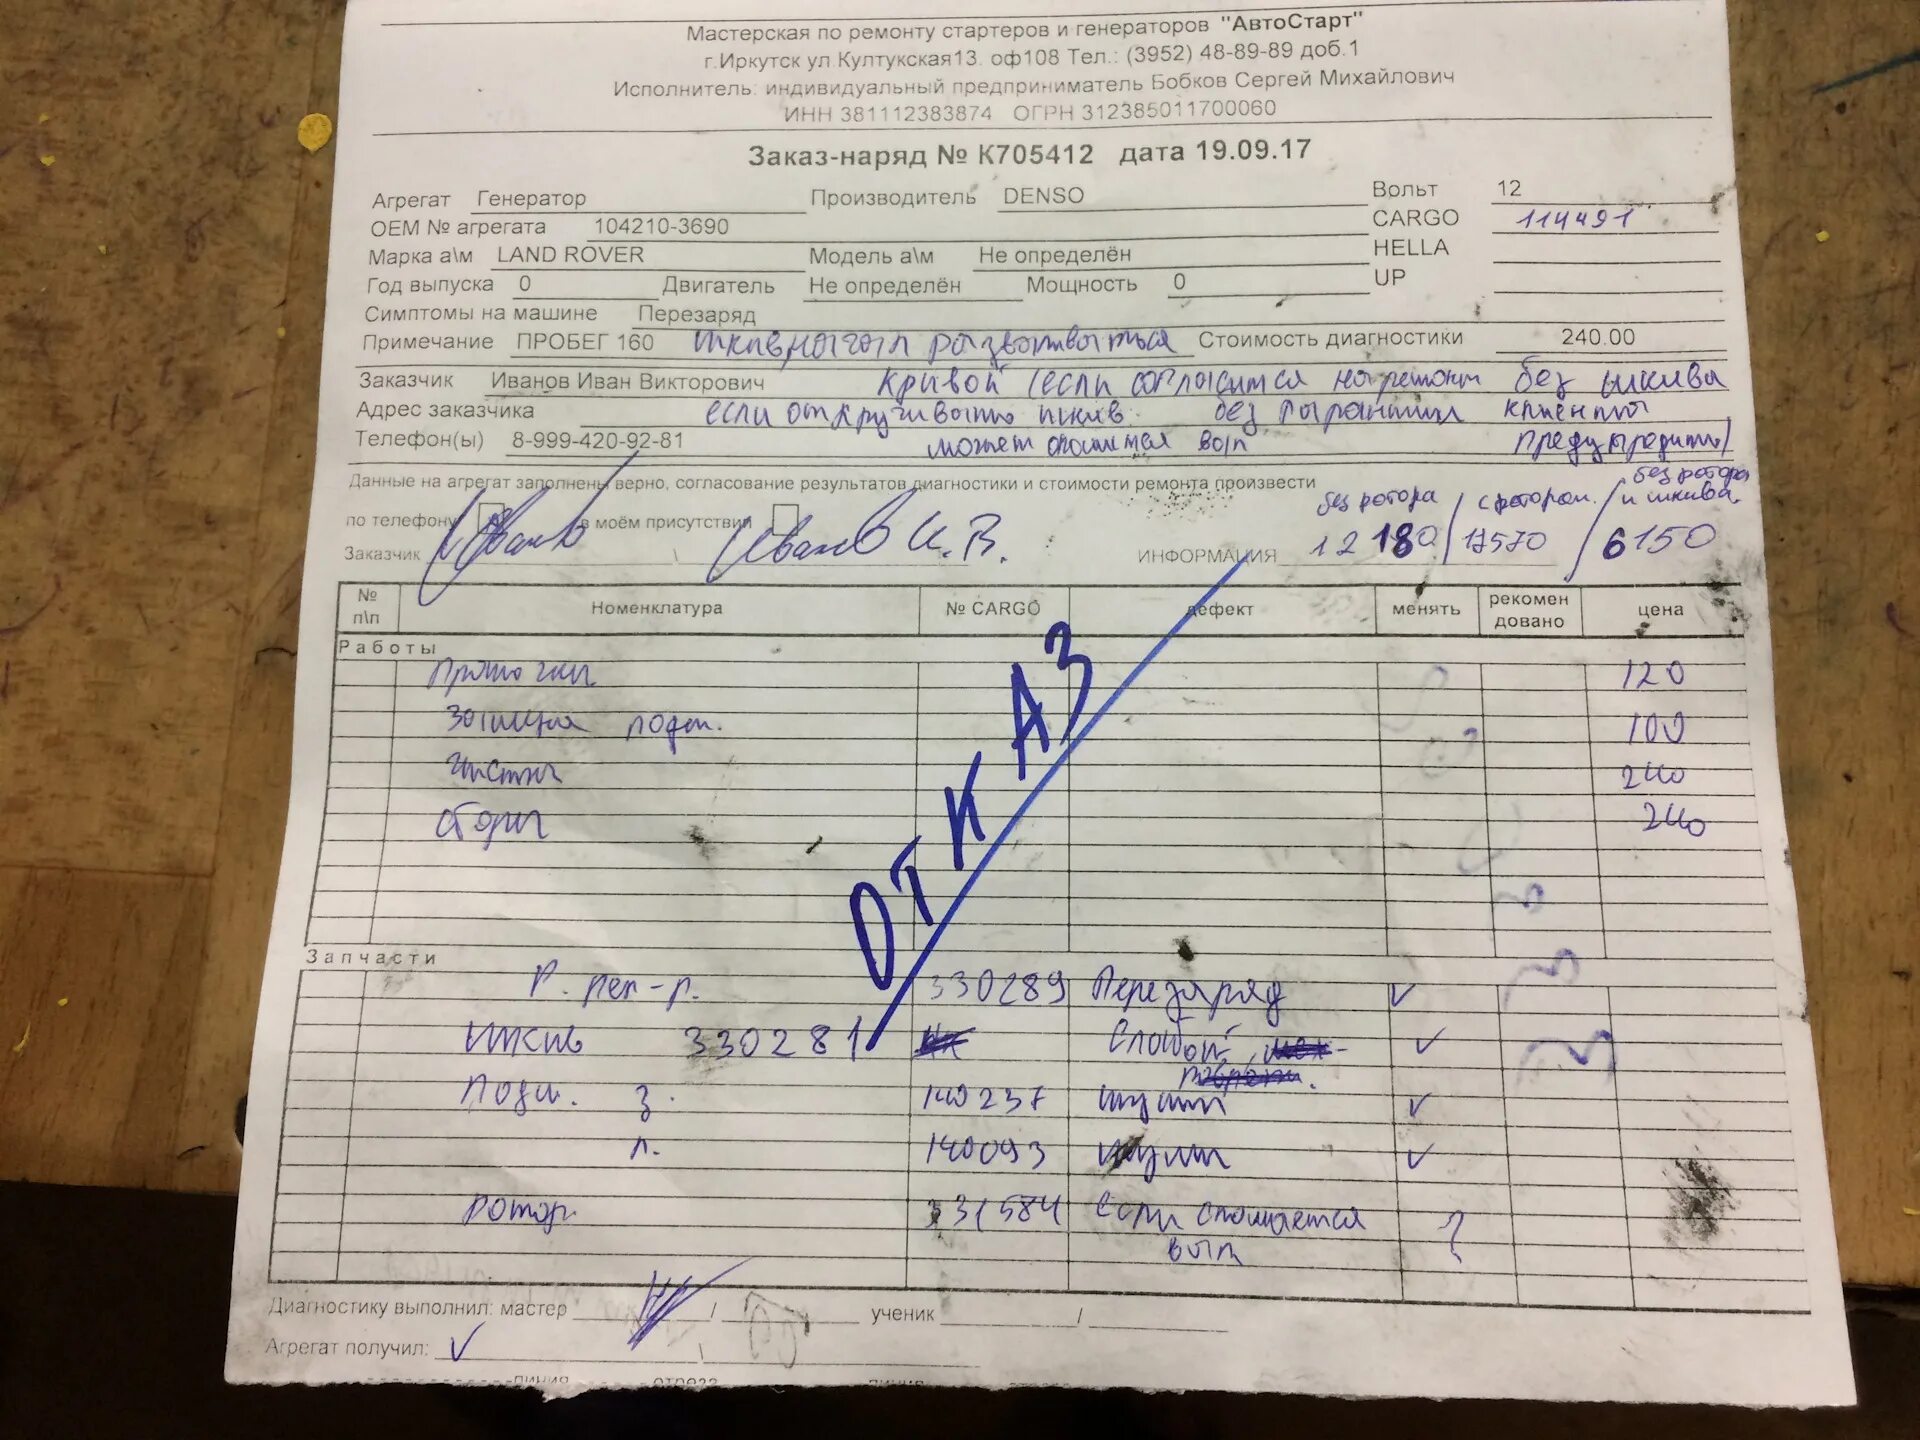 Мастерская по ремонту стартеров и генераторов "АвтоСтарт"
г.Иркутск ул.Култукская13. оф108 Тел.: (3952) 48-89-89 доб.1
Исполнитель: индивидуальный предприниматель Бобков Сергей Михайлович
ИНН 381112383874 ОГРН 312385011700060
Заказ-наряд № К705412 дата 19.09.17
Агрегат Генератор Производитель DENSO Вольт 12
OEM № агрегата 104210-3690 CARGO 114491
Марка а\м LAND ROVER Модель а\м Не определён HELLA
Год выпуска 0 Двигатель Не определён Мощность 0 UP
Симптомы на машине Перезаряд
Примечание ПРОБЕГ 160 Стоимость диагностики 240.00
Заказчик Иванов Иван Викторович кривой (если согласится на ремонт без шкива
Адрес заказчика если откручивать шкив. без гарантии клиента
Телефон(ы) 8-999-420-92-81 может сломается вал предупредить)
Данные на агрегат заполнены верно, согласование результатов диагностики и стоимости ремонта произвести
без ротора / с ротором / без ротора и шкива.
по телефону в моём присутствии
Заказчик Иванов \ Иванов И.В. ИНФОРМАЦИЯ 12180 / 17570 / 6150
№ п\п Номенклатура № CARGO дефект менять рекомен довано цена
Работы
Проточка 120
Защита подш. 100
Чистка 240
Сборка 240
ОТКАЗ
Запчасти
Р. рег-р. 330289 Перезаряд ✓
Шкив 330281 Слабой ✓
Подш. з. 140237 шумит ✓
п. 140093 шумит ✓
Ротор 331584 Если сломается ?
вал
Диагностику выполнил: мастер / ученик /
Агрегат получил: ✓ \
линия отреза линия